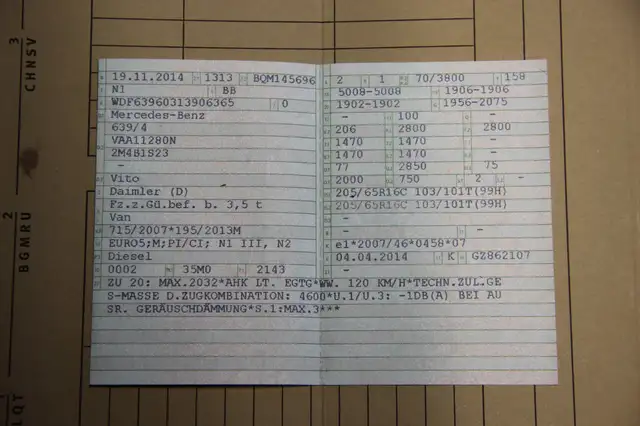 19.11.2014 1313 BQM145696
N1 BB
WDF63960313906365 0
Mercedes-Benz
639/4
VAA11280N
2M4B1S23
-
Vito
Daimler (D)
Fz.z.Gü.bef. b. 3,5 t
Van
715/2007*195/2013M
EURO5;M;PI/CI; N1 III, N2
Diesel
0002 35M0 2143
2 1 70/3800 158
5008-5008 1906-1906
1902-1902 1956-2075
- 100 -
206 2800 2800
1470 1470 -
1470 1470 -
77 2850 75
2000 750 2 -
205/65R16C 103/101T(99H)
205/65R16C 103/101T(99H)
-
- -
e1*2007/46*0458*07
04.04.2014 K GZ862107
-
ZU 20: MAX.2032*AHK LT. EGTG*WW. 120 KM/H*TECHN.ZUL.GE
S-MASSE D.ZUGKOMBINATION: 4600*U.1/U.3: -1DB(A) BEI AU
SR. GERÄUSCHDÄMMUNG*S.1:MAX.3***
3
CHNSV
2
BGMRU
LQT